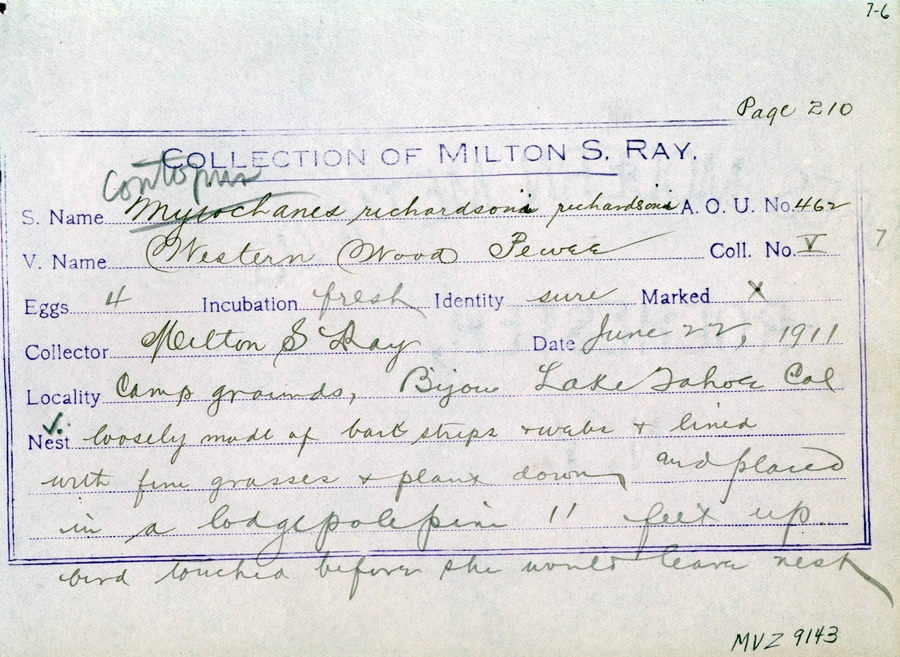 7-6
Page 210
COLLECTION OF MILTON S. RAY.
Contopus
S. Name Myiochanes richardsonii richardsonii A. O. U. No. 462
V. Name Western Wood Pewee Coll. No. V
7
Eggs 4 Incubation fresh Identity sure Marked X
Collector Milton S Ray Date June 22, 1911
Locality Camp grounds, Bijou Lake Tahoe Cal
Nest loosely made of bark strips & webs & lined
with fine grasses & plant down, and placed
in a lodgepole pine 11 feet up
bird touched before she would leave nest
MVZ 9143